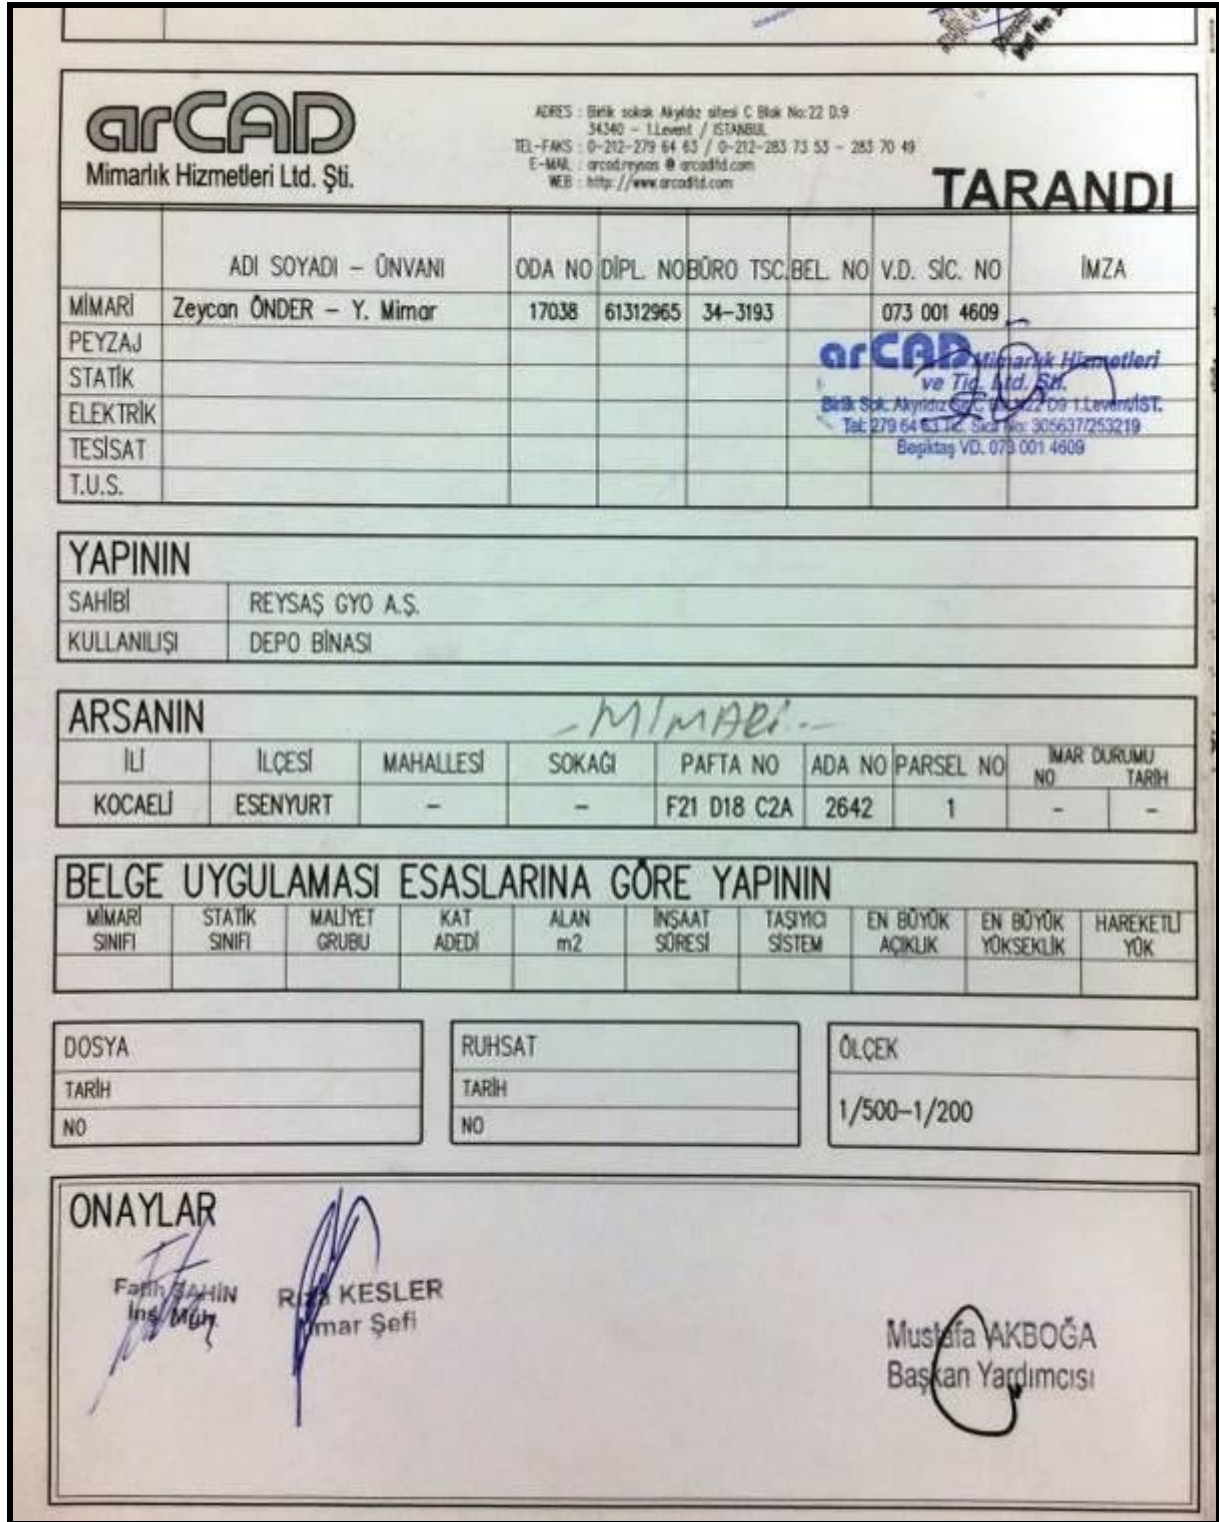 arCAD
Mimarlık Hizmetleri Ltd. Şti.
ADRES : Birlik sokak Akyıldız sitesi C Blok No:22 D.9
34340 - 1.Levent / İSTANBUL
TEL-FAKS : 0-212-279 64 63 / 0-212-283 73 53 - 283 70 49
E-MAIL : arcad.reysas @ arcadltd.com
WEB : http://www.arcadltd.com
TARANDI
ADI SOYADI - ÜNVANI ODA NO DİPL. NO BÜRO TSC. BEL. NO V.D. SİC. NO İMZA
MİMARİ Zeycan ÖNDER - Y. Mimar 17038 61312965 34-3193 073 001 4609
PEYZAJ
STATİK
ELEKTRİK
TESİSAT
T.U.S.
arCAD Mimarlık Hizmetleri
ve Tic. Ltd. Şti.
Birlik Sok. Akyıldız Sit. C D9 1.Levent/İST.
Tel: 279 64 63 Tic. Sicil No: 305637/253219
Beşiktaş VD. 073 001 4609
YAPININ
SAHİBİ REYSAŞ GYO A.Ş.
KULLANILIŞI DEPO BİNASI
ARSANIN - MİMARİ -
İLİ İLÇESİ MAHALLESİ SOKAĞI PAFTA NO ADA NO PARSEL NO İMAR DURUMU NO TARİH
KOCAELİ ESENYURT - - F21 D18 C2A 2642 1 - -
BELGE UYGULAMASI ESASLARINA GÖRE YAPININ
MİMARİ SINIFI STATİK SINIFI MALİYET GRUBU KAT ADEDİ ALAN m2 İNŞAAT SÜRESİ TAŞIYICI SİSTEM EN BÜYÜK AÇIKLIK EN BÜYÜK YÜKSEKLİK HAREKETLİ YÜK
DOSYA
TARİH
NO
RUHSAT
TARİH
NO
ÖLÇEK
1/500-1/200
ONAYLAR
Fatih ŞAHİN
İnş. Müh.
Rıza KESLER
İmar Şefi
Mustafa AKBOĞA
Başkan Yardımcısı